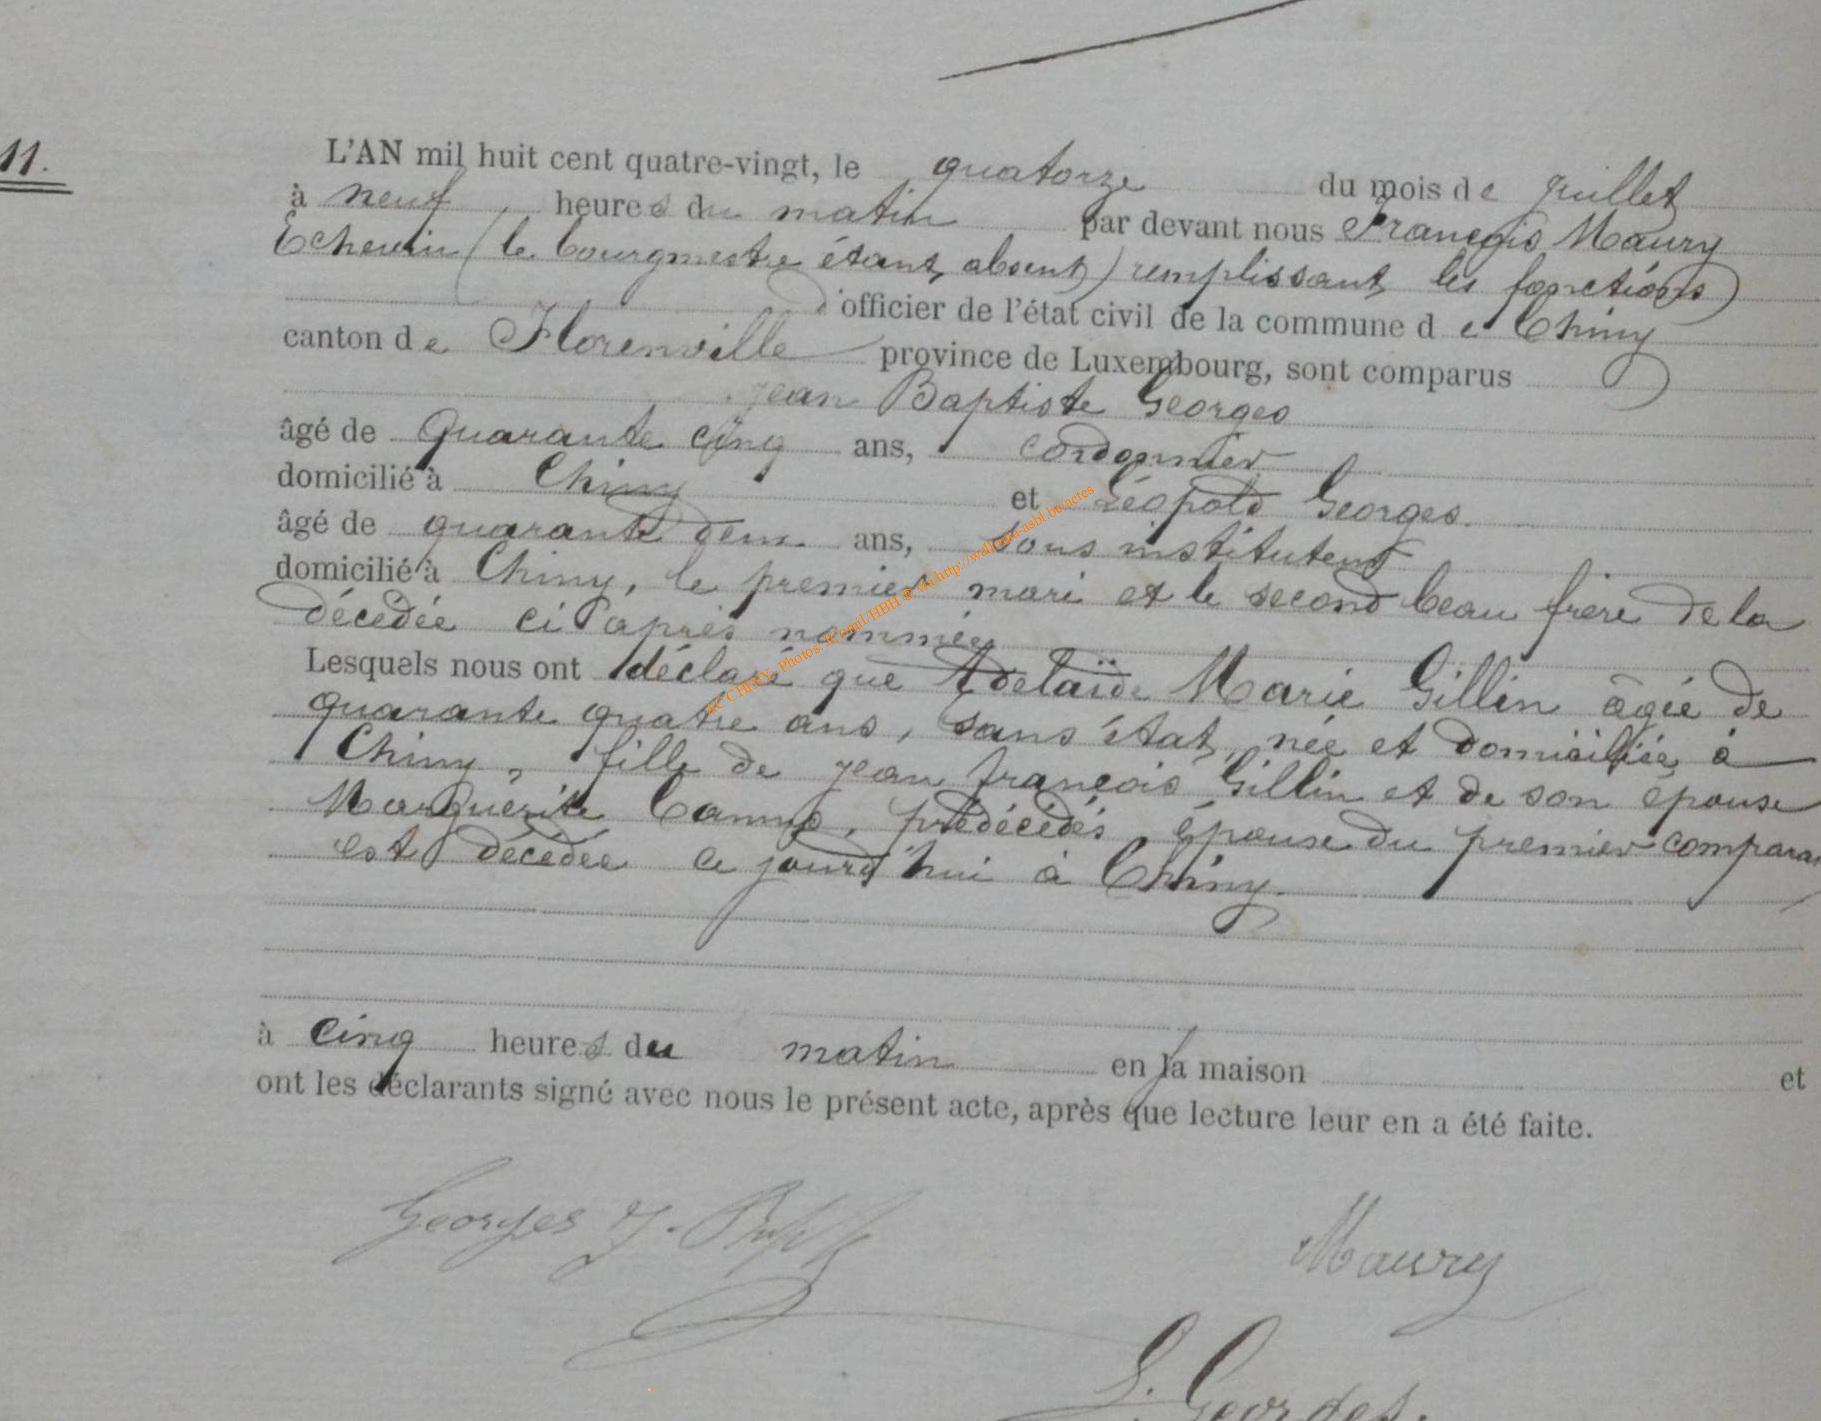 11.
L'AN mil huit cent quatre-vingt, le quatorze du mois de juillet
à neuf heures du matin par devant nous François Maury
Echevin (le bourgmestre étant absent) remplissant les fonctions
d'officier de l'état civil de la commune de Chiny
canton de Florenville province de Luxembourg, sont comparus
Jean Baptiste Georges
âgé de quarante cinq ans, cordonnier
domicilié à Chiny et Léopold Georges
âgé de quarante deux ans, sous instituteur
domicilié à Chiny, le premier mari et le second beau frère de la
décédée ci après nommée
Lesquels nous ont déclaré que Adelaïde Marie Gillin âgée de
quarante quatre ans, sans état, née et domiciliée à
Chiny, fille de jean françois Gillin et de son épouse
Marguérite, prédécédés, épouse du premier comparant
est décédée ce jourd'hui à Chiny.
à cinq heures du matin en sa maison et
ont les déclarants signé avec nous le présent acte, après que lecture leur en a été faite.
Georges J. Bapt
Maury
L. Georges.